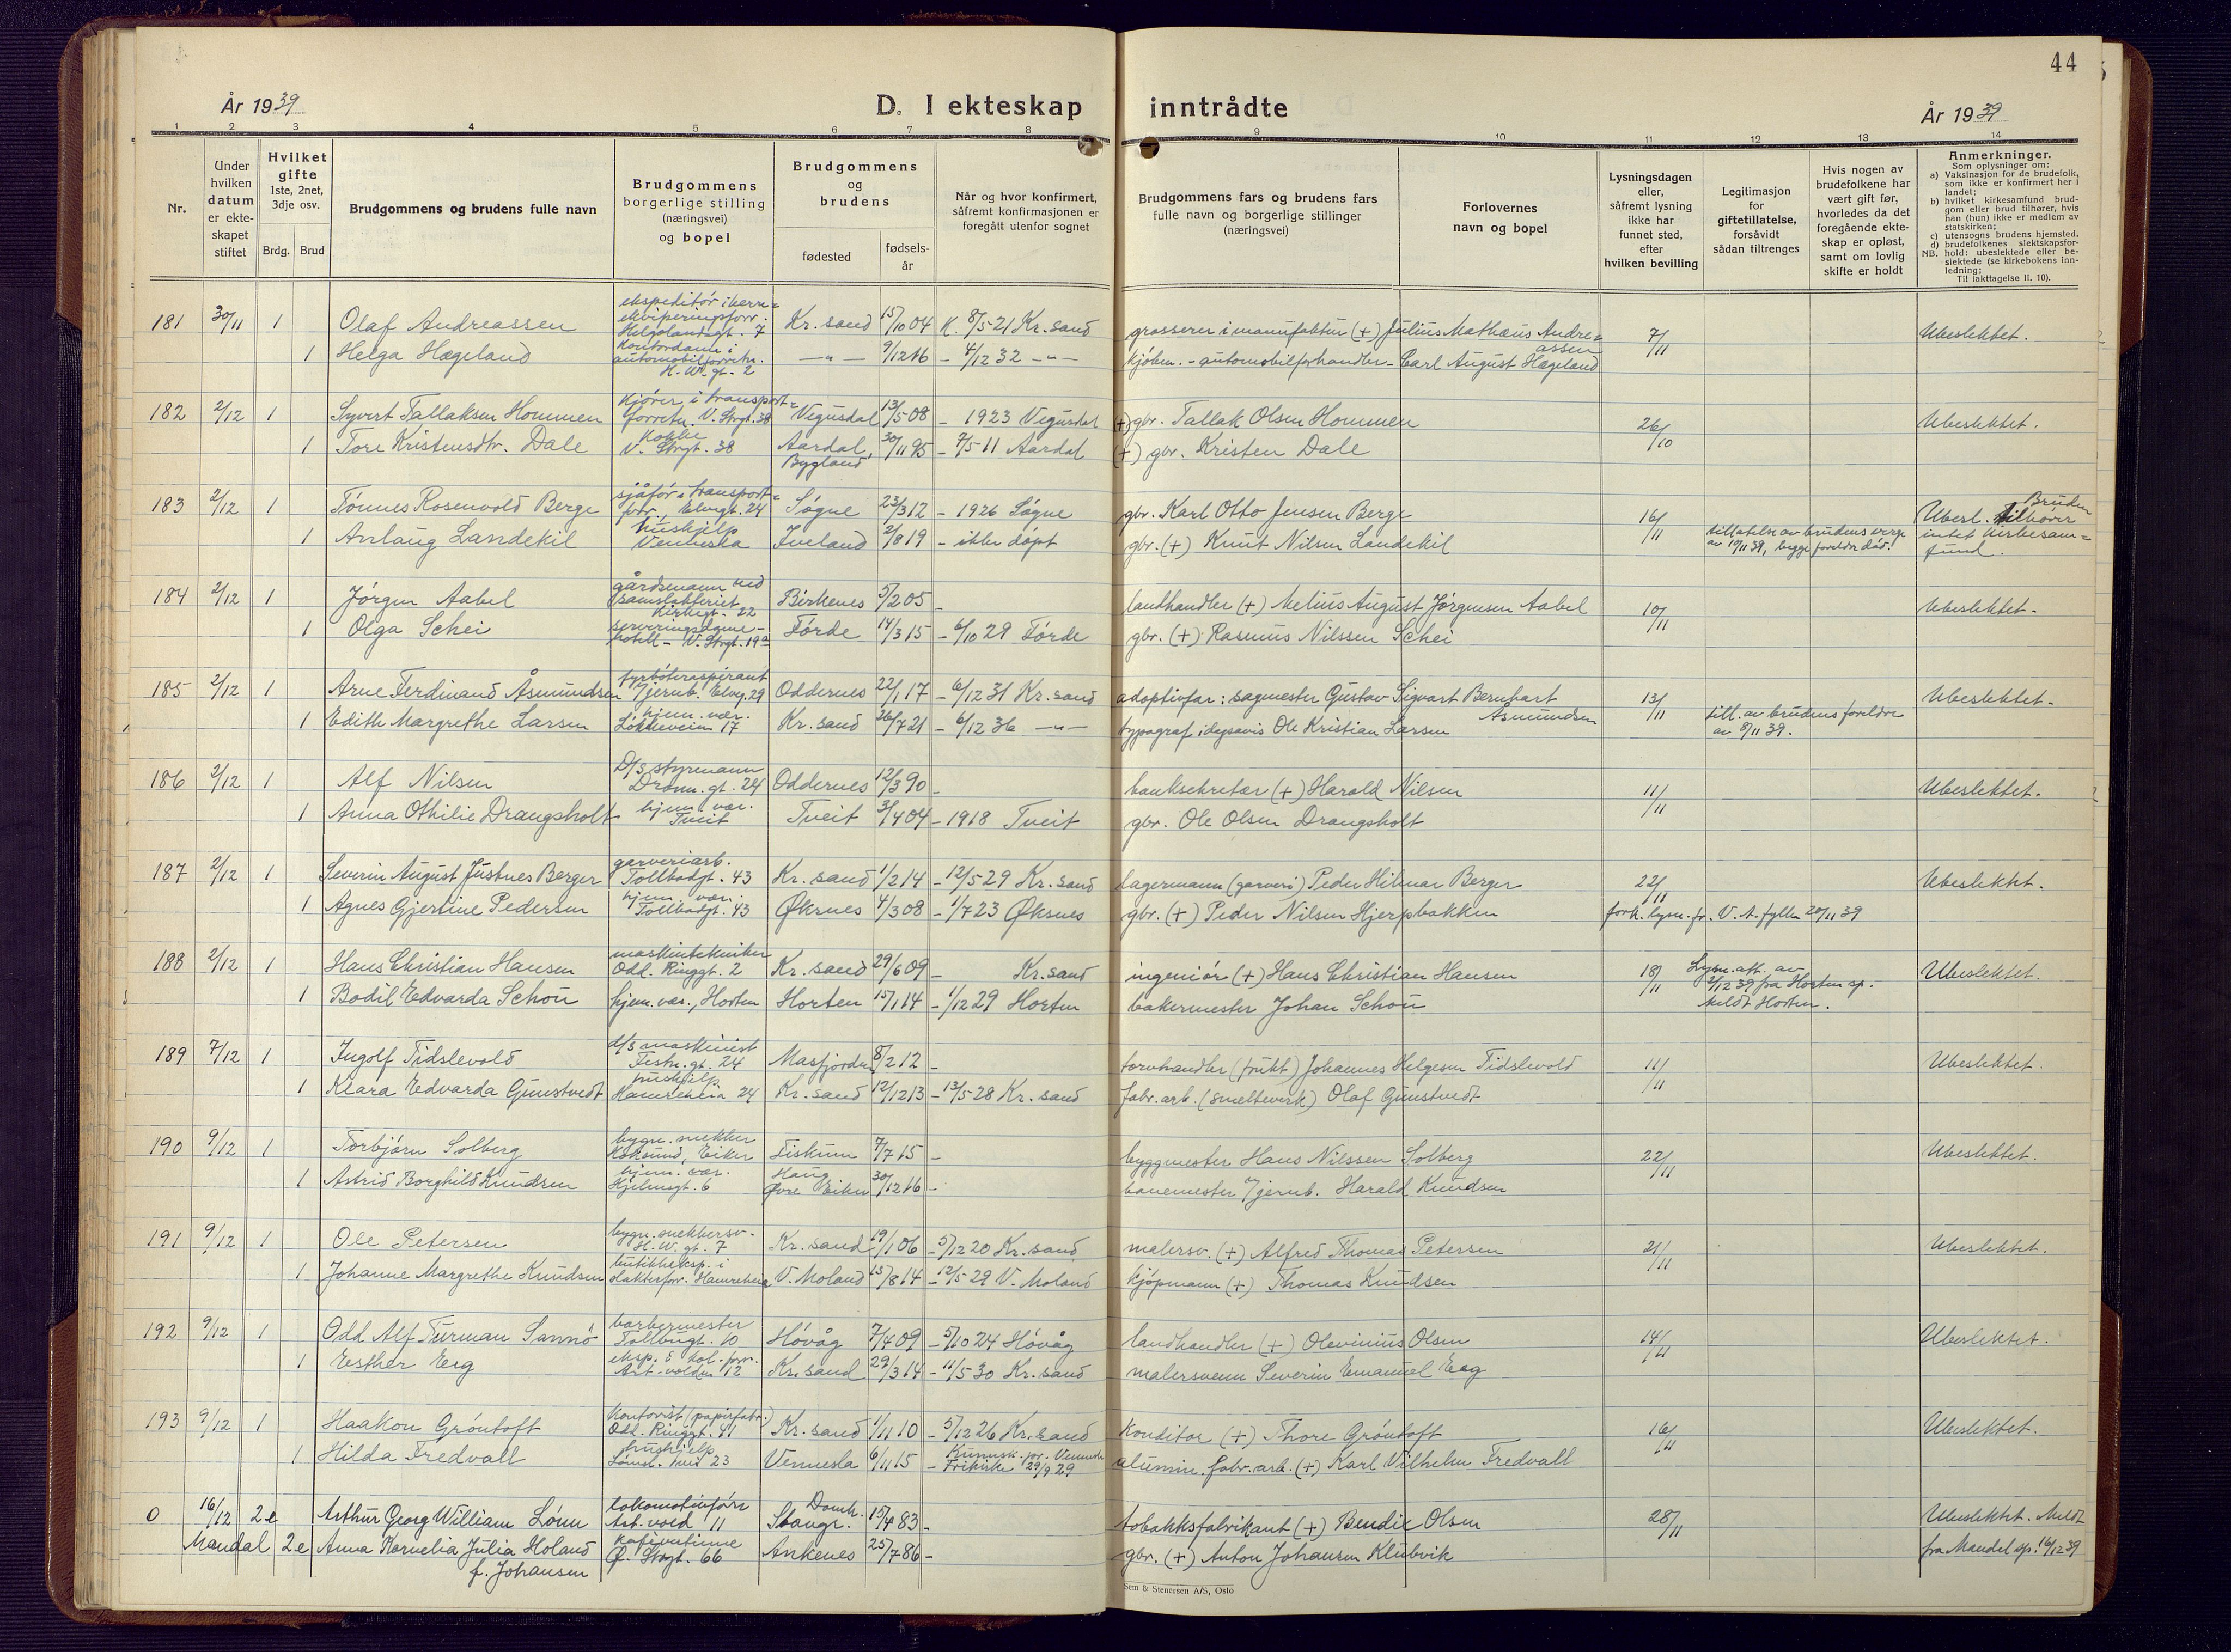 44
År 1939
D. I ekteskap inntrådte
År 1939
1 2 3 4 5 6 7 8 9 10 11 12 13 14
Nr.
Under hvilken datum er ekte-skapet stiftet
Hvilket gifte 1ste, 2net, 3dje osv.
Brdg. Brud
Brudgommens og brudens fulle navn
Brudgommens borgerlige stilling (næringsvei) og bopel
Brudgommens og brudens
fødested
fødsels-år
Når og hvor konfirmert, såfremt konfirmasjonen er foregått utenfor sognet
Brudgommens fars og brudens fars fulle navn og borgerlige stillinger (næringsvei)
Forlovernes navn og bopel
Lysningsdagen eller, såfremt lysning ikke har funnet sted, efter hvilken bevilling
Legitimasjon for giftetillatelse, forsåvidt sådan tiltrenges
Hvis nogen av brudefolkene har vært gift før, hvorledes da det foregående ekte-skap er opløst, samt om lovlig skifte er holdt
Anmerkninger.
Som oplysninger om:
a) Vaksinasjon for de brudefolk, som ikke er konfirmert her i landet;
b) hvilket kirkesamfund brud-gom eller brud tilhører, hvis han (hun) ikke er medlem av statskirken;
c) utensogns brudens hjemsted.
d) brudefolkenes slektskapsfor-
NB. hold: ubeslektede eller be-slektede (se kirkebokens inn-ledning;
Til iakttagelse II. 10).
181 30/11 1 Olaf Andreassen ekspeditör i herre-ekviperingsforr. Helgolandsgt. 7 Kr.sand 15/10 04 K. 8/5-21 Kr.sand grosserer i manufaktur (+) Julius Mathæus Andreassen 7/11 Ubeslektet.
1 Helga Hægeland kontordame i automobilforretn. H.W.gt. 2 —"— 9/12 16 - 4/12 32 —"— kjöbm. - automobilforhandler - Carl August Hægeland
182 2/12 1 Syvert Tallaksen Hommen kjörer i transport-forretn. V. Strgt. 38 Vegusdal 13/5 08 - 1923 Vegusdal (+) gbr. Tallak Olsen Hommen 26/10 Ubeslektet.
1 Tore Kristensdtr. Dale kokke V. Strgt. 38 Aardal, Bygland 30/11 95 - 7/5-11 Aardal (+) gbr. Kristen Dale
183 2/12 1 Tönnes Rosenvold Berge sjåför i transport-forr., Elvegt. 24 Søgne 23/3 12 - 1926 Søgne gbr. Karl Otto Jensen Berge 16/11 Ubesl. Bruden tilhörer intet kirkesam-fund.
1 Anlaug Landekil hushjelp Vennesla Iveland 2/8 19 - ikke döpt gbr. (+) Knut Nilsen Landekil tillatelse av brudens verge av 10/11 39, begge foreldre död.
184 2/12 1 Jörgen Aabel gårdsmann ved Samslakteriet Kirkegt. 22 Birkenes 5/2 05 - landhandler (+) Melius August Jörgensen Aabel 10/11 Ubeslektet.
1 Olga Schei serveringsdame - hotell - V. Strgt. 19a Förde 14/3 15 - 6/10 29 Förde gbr. (+) Rasmus Nilssen Schei
185 2/12 1 Arne Ferdinand Åsmundsen fyrböteraspirant v/jernb. Elveg. 29 Oddernes 22/1 17 - 6/12 31 Kr.sand adoptivfar: sagmester Gustav Sigvart Bernhart Åsmundsen 13/11 Ubeslektet.
1 Edith Margrethe Larsen hjem. vær. Lökkeveien 17 Kr.sand 26/7 21 - 6/12 36 —"— typograf i dagsavis Ole Kristian Larsen till. av brudens foreldre av 8/11 39.
186 2/12 1 Alf Nilsen D/S styrmann Dronn. gt. 24 Oddernes 12/3 90 - banksekretær (+) Harald Nilsen 11/11 Ubeslektet.
1 Anna Othilie Drangsholt hjem. vær. Tveit Tveit 3/4 04 - 1918 Tveit gbr. Ole Olsen Drangsholt
187 2/12 1 Severin August Justnes Berger garveriarb. Tollbodgt. 43 Kr.sand 1/2 14 - 12/5-29 Kr.sand lagermann (garveri) Peder Hilmar Berger 22/11 Ubeslektet.
1 Agnes Gjertine Pedersen hjem. vær. Tollbodgt. 43 Øksnes 4/3 08 - 1/7 23 Øksnes gbr. (+) Peder Nilsen Hjerpbakken fork. lysn. fr. V. A. fylke 20/11 39
188 2/12 1 Hans Christian Hansen maskintekniker Odd. Ringgt. 2 Kr.sand 29/6 09 - Kr.sand ingeniör (+) Hans Christian Hansen 18/11 Lysn. att. av 2/12 39 fra Horten sp. Meldt Horten. Ubeslektet.
1 Bodil Edvarda Schou hjem. vær., Horten Horten 15/1 14 - 1/12 29 Horten bakermester Johan Schou
189 7/12 1 Ingolf Tidslevold d/s maskinist Festn. gt. 24 Masfjorden 8/2 12 - torvhandler (frukt) Johannes Helgesen Tidslevold 11/11 Ubeslektet.
1 Klara Edvarda Gunstvedt hushjelp Hamreheia 24 Kr.sand 12/12 13 - 13/5-28 Kr.sand fabr.arb. (smelteverk) Olaf Gunstvedt
190 9/12 1 Torbjörn Solberg bygn. snekker Hokksund, Eiker Fiskum 7/7 15 - byggmester Hans Nilssen Solberg 22/11 Ubeslektet.
1 Astrid Borghild Knudsen hjem. vær. Hjelmsgt. 6 Haug Øvre Eiker 30/12 16 - banemester v/jernb. Harald Knudsen
191 9/12 1 Ole Petersen bygn. snekkersv. H.W. gt. 7 Kr.sand 19/1 06 - 5/12 20 Kr.sand malersv. (+) Alfred Thomas Petersen 21/11 Ubeslektet.
1 Johanne Margrethe Knudsen butikkeksp. i slakterforr. Hamreheia V. Moland 15/8 14 - 12/5-29 V. Moland kjöpmann (+) Thomas Knudsen
192 9/12 1 Odd Alf Furman Sannö barbermester Tollbugt. 10 Hövåg 7/4 09 - 5/10 24 Hövåg landhandler (+) Olevinius Olsen 14/11 Ubeslektet.
1 Esther Eeg eksp. i kol. forr. Art. volden 12 Kr.sand 29/3 14 - 11/5-30 Kr.sand malersvenn Severin Emanuel Eeg
193 9/12 1 Haakon Gröntoft kontorist (papirfabr.) Odd. Ringgt. 41 Kr.sand 1/11 10 - 5/12 26 Kr.sand konditor (+) Thore Gröntoft 16/11 Ubeslektet.
1 Hilda Fredvall hushjelp 23 Vennesla 6/11 15 - Vennesla Frikirke 29/9 29 alumin. fabr. arb. (+) Karl Vilhelm Fredvall
0 16/12 2e Arthur Georg William Lönn lokomotivförer Art. vold 11 Domk. Stavgr. 15/4 83 - tobakksfabrikant (+) Bendix Olsen 28/11 Ubeslektet. Meldt
Mandal 2e Anna Kornelia Julia Holand f. Johansen Ø. Strgt. 66 Ankenes 25/7 86 - gbr. (+) Anton Johansen Klubvik fra Mandal sp. 16/12 39
Sem & Stenersen A/S, Oslo